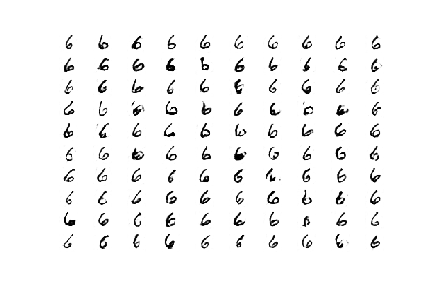 6 6 6 6 6 6 6 6 6 6
6 6 6 6 6 6 6 6 6 6
6 6 6 6 6 6 6 6 6 6
6 6 6 6 6 6 6 6 6
6 6 6 6 6 6 6 6 6 6
6 6 6 6 6 6 6 6 6 6
6 6 6 6 6 6 6 6 6
6 6 6 6 6 6 6 6 6 6
6 6 6 6 6 6 6 6 6
6 6 6 6 6 6 6 6 6 6